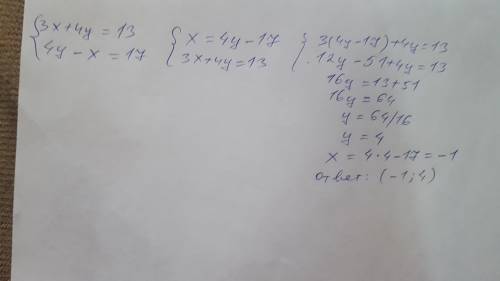 3x+4y=13
4y-x=17
x=4y-17
3x+4y=13
3(4y-17)+4y=13
12y-51+4y=13
16y=13+51
16y=64
y=64/16
y=4
x=4·4-17=-1
ответ: (-1; 4)